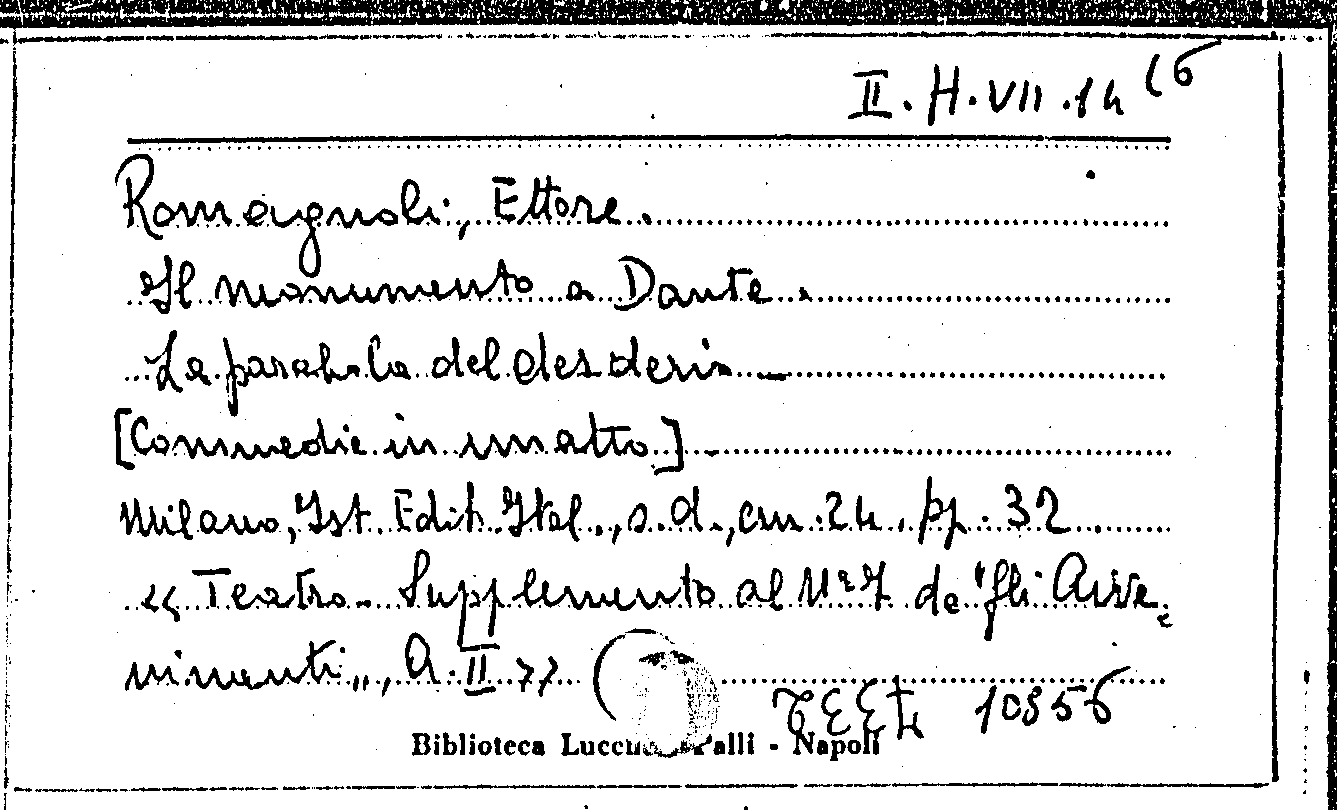 II. H. VII. 14 (6
Romagnoli, Ettore.
Il monumento a Dante.
La parabola del desiderio _
[Commedie in un atto] _
Milano, Ist. Edit. Ital., s.d., cm. 24. pp. 32
« Teatro - Supplemento al Nº 7 de "Gli Avve-
nimenti", A. II »
10856
Biblioteca Lucchesi Palli - Napoli